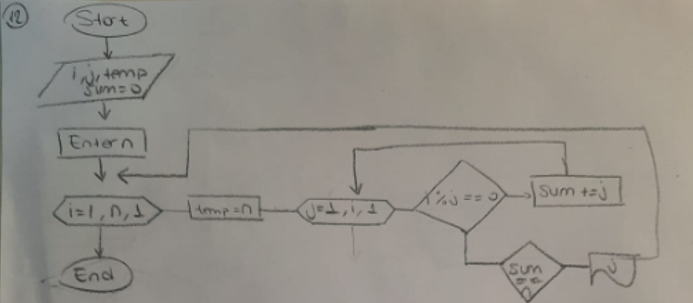 12
Start
i, j, temp
sum=0
Enter n
i=1, n, 1
temp=n
j=1, i, 1
i%j==0
sum+=j
sum
==
n
j
End